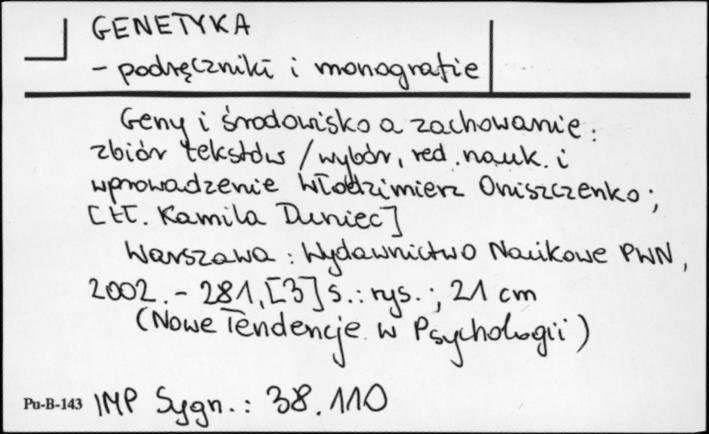 GENETYKA
- podręczniki i monografie
Geny i środowisko a zachowanie :
zbiór tekstów / wybór, red. nauk. i
wprowadzenie Włodzimierz Oniszczenko ;
[tł. Kamila Duniec]
Warszawa : Wydawnictwo Naukowe PWN,
2002. - 281, [3] s. : rys. ; 21 cm
(Nowe Tendencje w Psychologii)
Pu-B-143 IMP Sygn. : 38.110